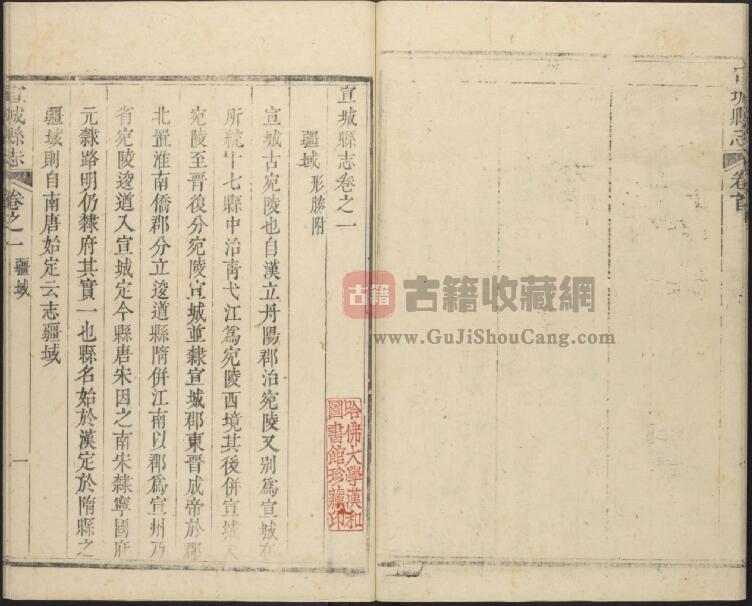 宣城縣志
卷首
宣城縣志卷之一
疆域 形勝附
宣城古宛陵也自漢立丹陽郡治宛陵又別爲宣城在
所統十七縣中治青弋江爲宛陵西境其後併宣城入
宛陵至晉後分宛陵宣城並隸宣城郡東晉成帝於郡
北置淮南僑郡分立逡遒縣隋併江南以郡爲宣州乃
省宛陵逡遒入宣城定今縣唐宋因之南宋隸寧國府
元隸路明仍隸府其實一也縣名始於漢定於隋縣之
疆域則自南唐始定云志疆域
宣城縣志
卷之一
疆域
一
哈佛大學漢和
圖書館珍藏印
古籍
古籍收藏網
www.GuJiShouCang.com